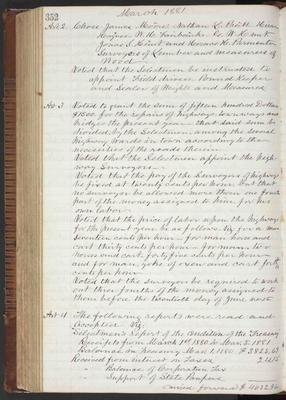 352
March 1881
Art 2. Chose James Moore Nathan L. Pratt Hiram
W. H. Fairbanks Geo. W. Hunt
Jonas S. Hunt and Horace R. Parmenter
Surveyors of Lumber and Measurers of
Wood
Voted that the Selectmen be instructed to
appoint Field drivers Pound Keeper
and Sealer of Weights and Measures
Art 3 Voted to grant the sum of fifteen hundred Dollars
$1500 for the repairs of highways townways and
bridges the present year. That said sum be
divided by the Selectmen among the several
highway wards in town according to the
necessities of the roads therein
Voted that the Selectmen appoint the high-
way Surveyors
Voted that the pay of the Surveyors of highways
be fixed at twenty cents per hour but that
no surveyor be allowed more than one fourth
part of the money assigned to him for his
own labor.
Voted that the price of labor upon the highways
for the present year be as follows. Viz. for a man
Seventeen cents per hour. for man horse and
cart thirty cents per hour for man two
horses and cart forty five cents per hour
and for man, yoke of oxen and cart forty
cents per hour
Voted that the surveyors be required to work
out three fourths of the money assigned to
them before the twentieth day of June next
Art 4 The following reports were read and
accepted Viz:
Selectmen's report of the condition of the Treasury
Receipts from March 1st 1880 to Mar. 5. 1881
Balance in Treasury Mar 1. 1880 $ 3825.63
Received from interest on Taxes
" Balance of Corporation Tax
" Support of State Paupers
carried forward $